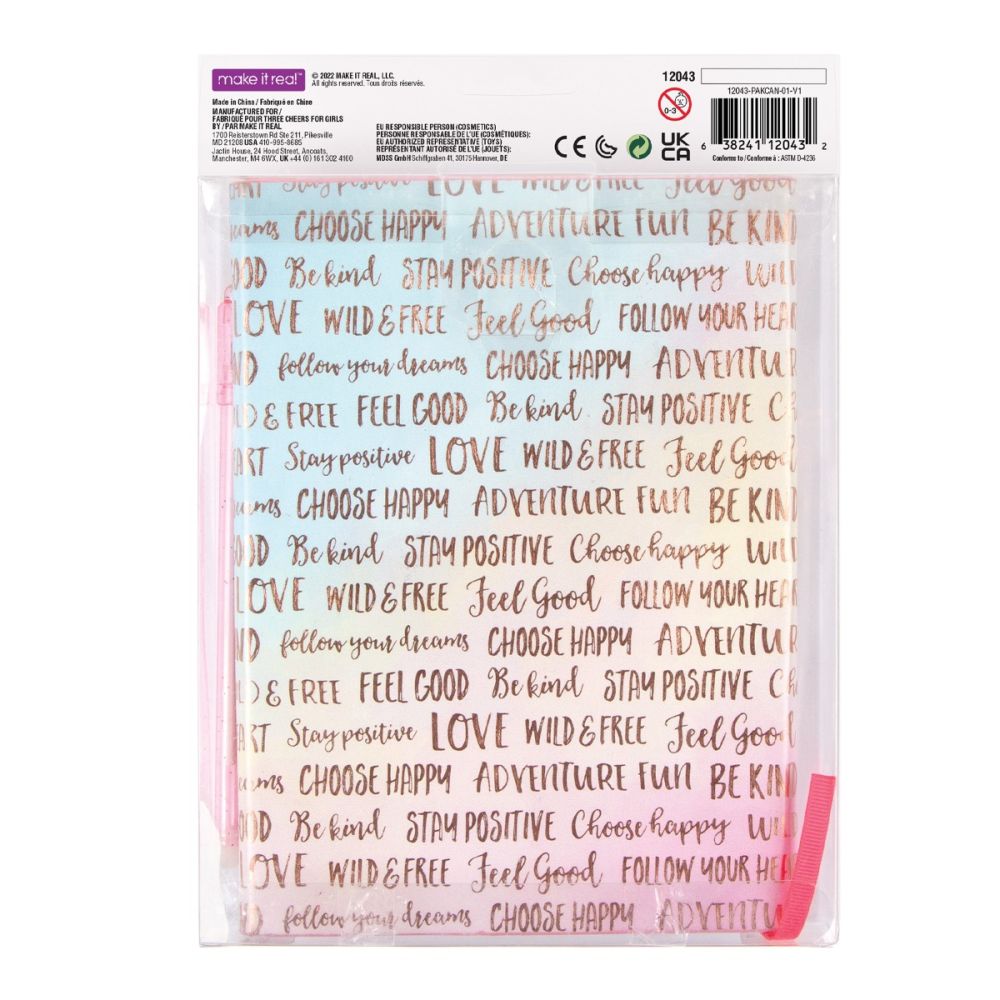 make it real™
© 2022 MAKE IT REAL, LLC.
All rights reserved. Tous droits réservés.
Made in China / Fabriqué en Chine
MANUFACTURED FOR /
FABRIQUÉ POUR THREE CHEERS FOR GIRLS
BY / PAR MAKE IT REAL
1700 Reisterstown Rd Ste 211, Pikesville
MD 21208 USA 410-995-8685
Jactin House, 24 Hood Street, Ancoats,
Manchester, M4 6WX, UK +44 (0) 161 302 4100
EU RESPONSIBLE PERSON (COSMETICS)
PERSONNE RESPONSABLE DE L'UE (COSMÉTIQUES):
EU AUTHORIZED REPRESENTATIVE (TOYS)
REPRÉSENTANT AUTORISÉ DE L'UE (JOUETS):
MDSS GmbH Schiffgraben 41, 30175 Hannover, DE
CE
UK
CA
12043
0-3
12043-PAKCAN-01-V1
6 38241 12043 2
Conforms to / Conforme à : ASTM D-4236
ART Stay positive LOVE WILD & FREE Feel Good
eams CHOOSE HAPPY ADVENTURE FUN BE KIN
OOD Be kind STAY POSITIVE Choose happy WIL
LOVE WILD & FREE Feel Good FOLLOW YOUR HEAR
ND follow your dreams CHOOSE HAPPY ADVENTUR
LD & FREE FEEL GOOD Be kind STAY POSITIVE C
EART Stay positive LOVE WILD & FREE Feel Good
eams CHOOSE HAPPY ADVENTURE FUN BE KIND
OOD Be kind STAY POSITIVE Choose happy WIL
LOVE WILD & FREE Feel Good FOLLOW YOUR HEAR
ND follow your dreams CHOOSE HAPPY ADVENTUR
LD & FREE FEEL GOOD Be kind STAY POSITIVE Ch
ART Stay positive LOVE WILD & FREE Feel Good
eams CHOOSE HAPPY ADVENTURE FUN BE KIN
OOD Be kind STAY POSITIVE Choose happy WIL
LOVE WILD & FREE Feel Good FOLLOW YOUR HEA
ND follow your dreams CHOOSE HAPPY ADVENTU